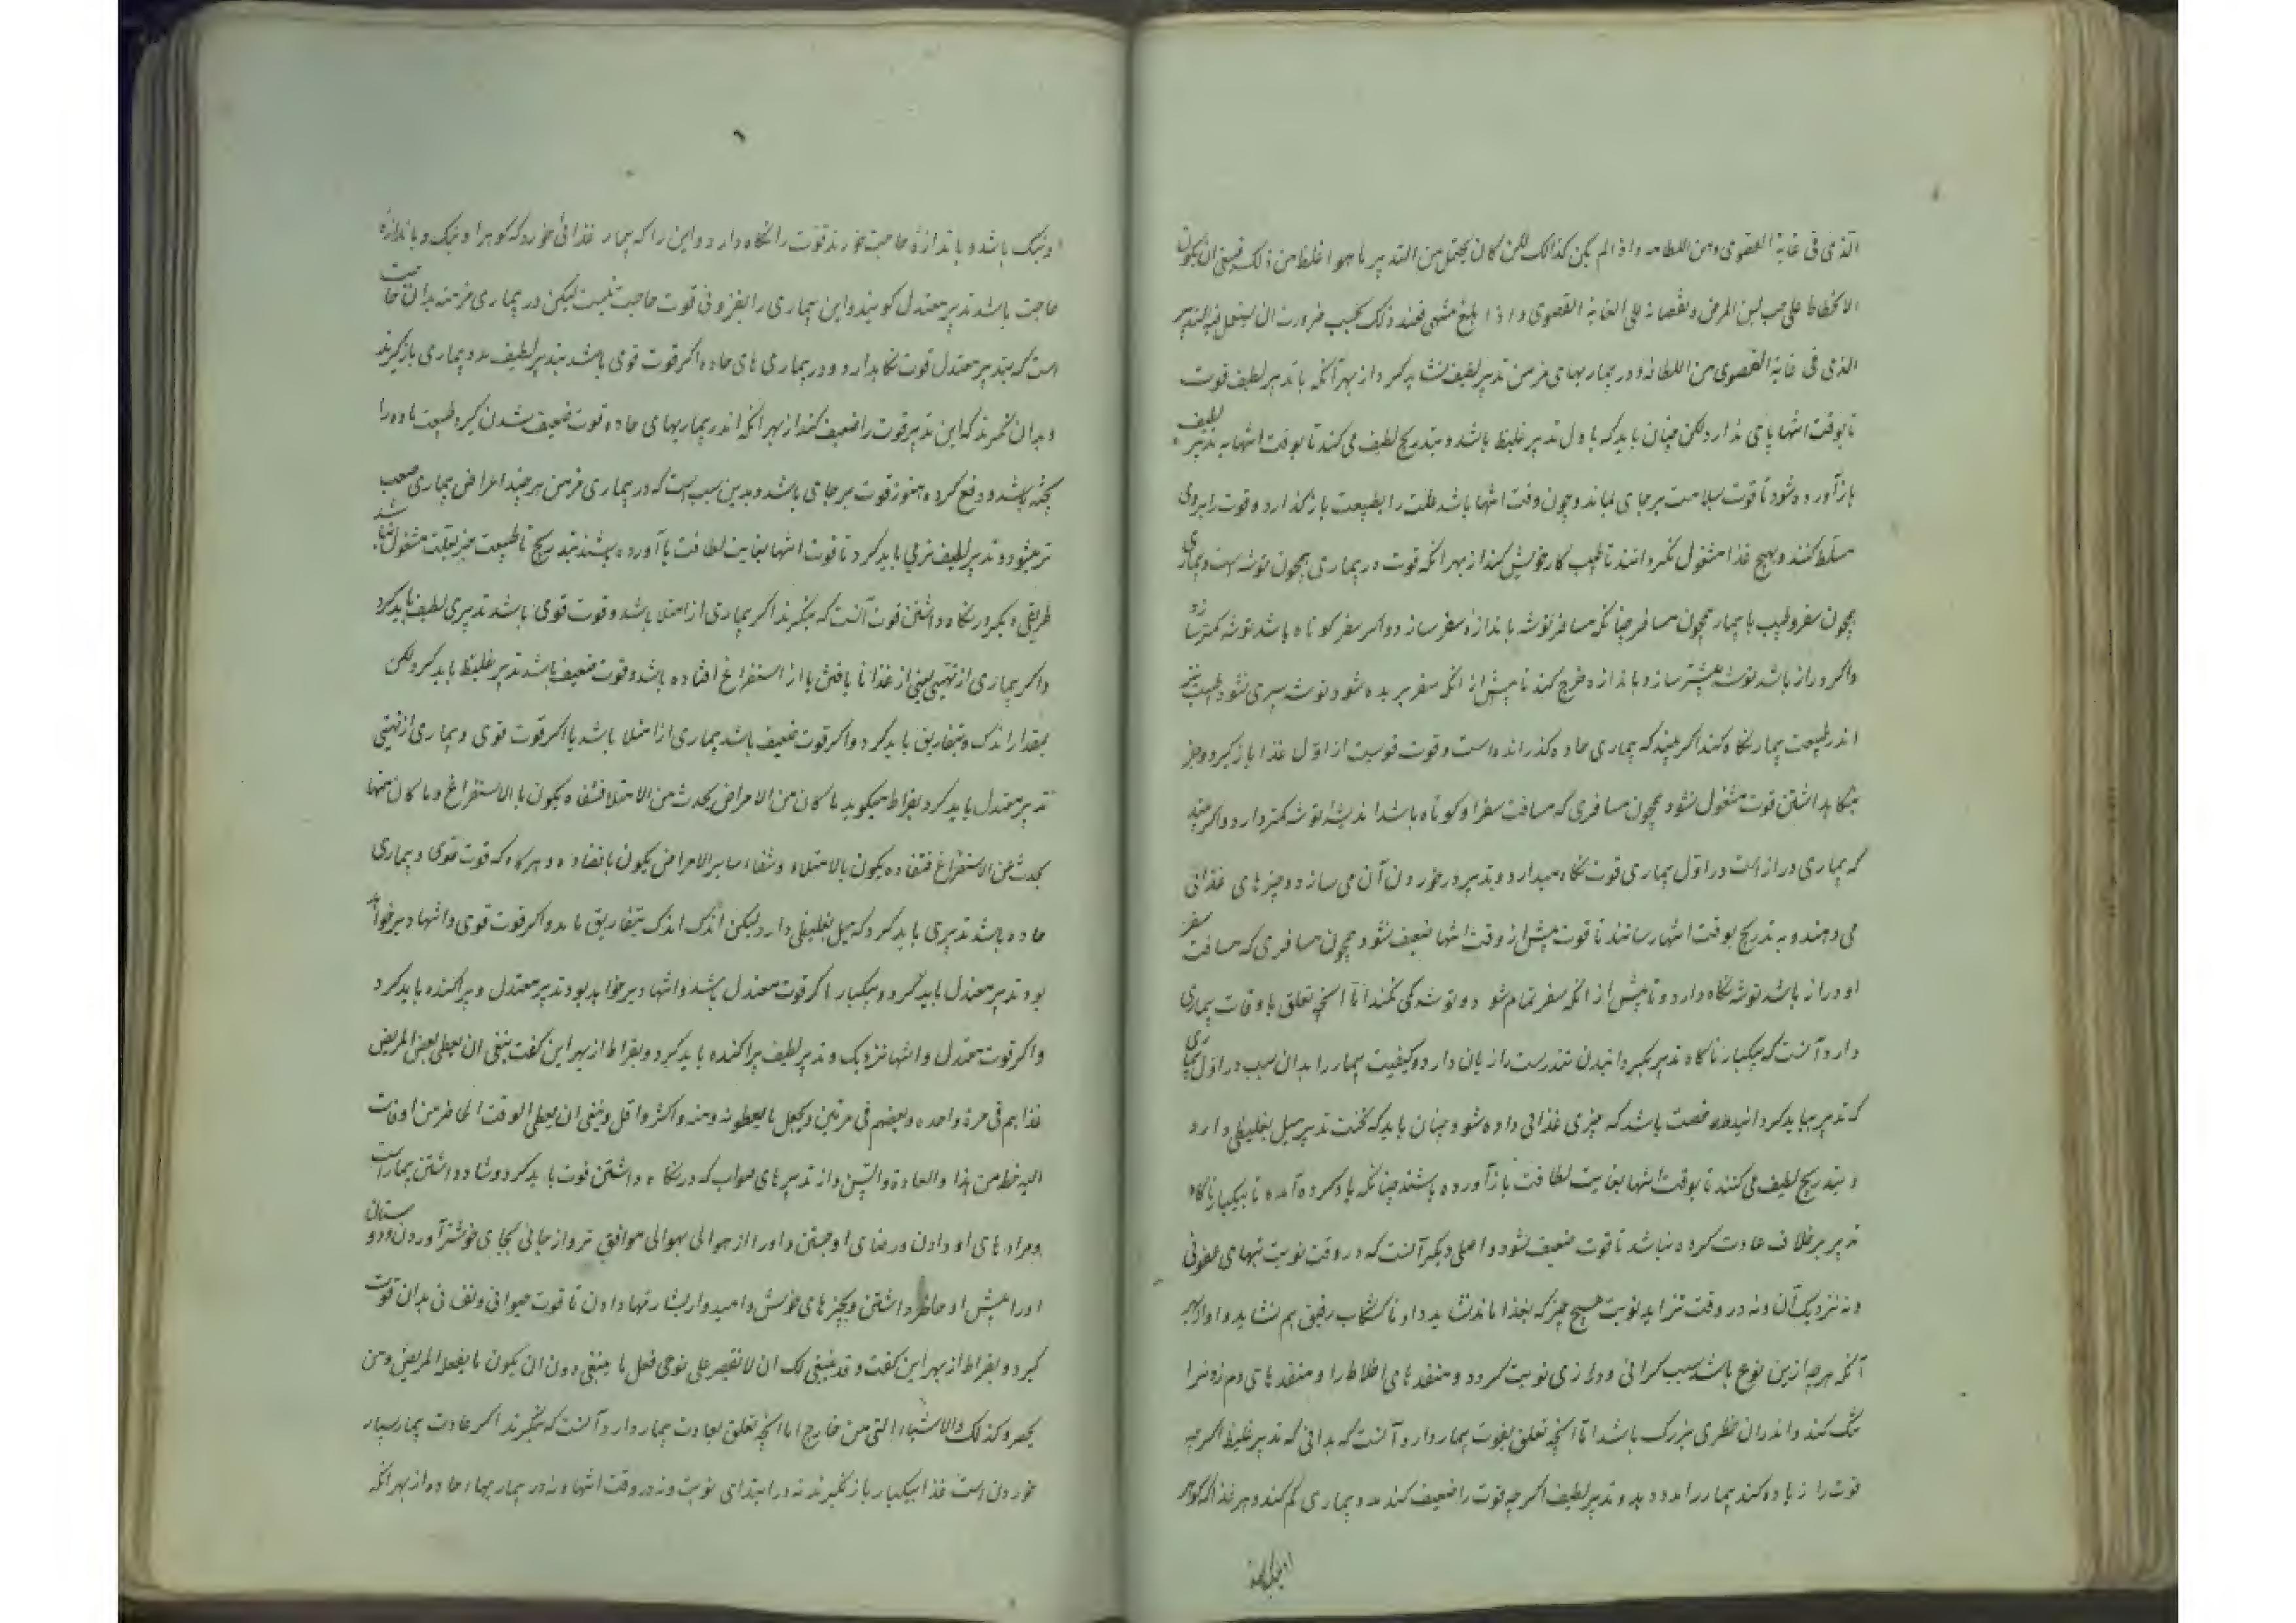 الذی فی غایة القصوی من اللطافه و اذا لم یکن کذالک لکن کان یحتمل من التدبیر ما هو اغلظ من ذلک فینبغی ان یکون
الانحطاط علی حسب لین المرض و نقصانه علی الغایة القصوی و اذا بلغ منتهی فعند ذلک یجب ضرورت ان یستعمل فیه التدبیر
الذی فی غایة القصوی من اللطافة و در بیماریهای مزمن تدبیر لطیف نشاید کرد از بهر آنکه با تدبیر لطیف قوت
تا بوقت انتها پای ندارد ولکن چنان باید که باول تدبیر غلیظ باشد و بتدریج لطیف می کنند تا بوقت انتها به تدبیر لطیف
باز آورده شود تا قوت سلامت بر جای بماند و چون وقت انتها باشد علت را بطبیعت باز گذارد و قوت را بروی
مسلط کنند و بهیچ غذا مشغول نگردانند تا طبیب کار خویش کند از بهر آنکه قوت در بیماری همچون توشه است و بیماری
همچون سفر و طبیب با بیمار همچون مسافر چنانکه مسافر توشه باندازه سفر سازد و اگر سفر کوتاه باشد توشه کمتر سازد
و اگر دراز باشد توشه بیشتر سازد و باندازه خرج کند تا پیش از آنکه سفر بریده شود توشه سپری نشود طبیب نیز
اندر طبیعت بیمار نگاه کند اگر بیند که بیماری حاده گذرانده است و قوت قویست از اول غذا باز گیرد و جز
بنگاه داشتن قوت مشغول نشود همچون مسافری که مسافت سفر او کوتاه باشد اندیشه توشه کمتر دارد و اگر بیند
که بیماری دراز است در اول بیماری قوت نگاه میدارد و تدبیر در خوردن آن می سازد و چیزهای غذائی
می دهند و به تدریج بوقت انتها رسانند تا قوت پیش از وقت انتها ضعیف نشود همچون مسافری که مسافت سفر
او دراز باشد توشه نگاه دارد و تا پیش از آنکه سفر تمام شود توشه کمی نکند اما آنچه تعلق باوقات بیماری
دارد آنست که بیکبار ناگاه تدبیر بگردانیدن تندرست را زیان دارد و کیفیت بیمار را بدان سبب در اول بیماری
که تدبیر بباید گردانید رخصت باشد که چیزی غذائی داده شود چنان باید که نخست تدبیر میل بغلیظی دارد
و بتدریج لطیف می کنند تا بوقت انتها بغایت لطافت باز آورده باشند چنانکه یاد کرده آمده تا بیکبار ناگاه
تدبیر بر خلاف عادت کرده نباشد تا قوت ضعیف نشود و اصلی دیگر آنست که در وقت نوبت تبهای عفونی
و نه نزدیک آن و نه در وقت تزاید نوبت هیچ چیز که بغذا ماند نشاید داد تا کشکاب رقیق هم نشاید داد از بهر
آنکه هر چه ازین نوع باشد سبب گرانی و درازی نوبت گردد و منفذهای اخلاط را و منفذهای دم زدن را
تنگ کند و اندران خطری بزرگ باشد اما آنچه تعلق بقوت بیمار دارد آنست که بدانی که تدبیر غلیظ اگر چه
قوت را زیاده کند بیمار را مدد دهد و تدبیر لطیف اگر چه قوت را ضعیف کند مدد بیماری کم کند و هر غذا که گوهر
او نیک باشد و باندازهٔ حاجت خورند قوت را نگاه دارد و این را که بیمار غذائی خورد که گوهر او نیک و باندازهٔ
حاجت باشد تدبیر معتدل گویند و این بیماری را بفزونی قوت حاجت نیست لیکن در بیماری مزمنه بدان حاجت
است که بتدبیر معتدل قوت نگاهدارد و در بیماری های حاده اگر قوت قوی باشد بتدبیر لطیف مدد بیماری باز گیرند
و بدان ننگرند که این تدبیر قوت را ضعیف کند از بهر آنکه اندر بیماریهای حاده قوت ضعیف شدن گیرد طبیعت ماده را
پخته باشد و دفع کرده هنوز قوت بر جای باشد و بدین سبب است که در بیماری مزمن هر چند اعراض بیماری صعب
تر میشود تدبیر لطیف تر می باید کرد تا قوت انتها بغایت لطافت باز آورده باشند بتدریج تا طبیعت بجز بعلت مشغول نباشد
طریقی دیگر در نگاه داشتن قوت آنست که بنگرند اگر بیماری از امتلا باشد و قوت قوی باشد تدبیری لطیف باید کرد
و اگر بیماری از تهیبی یعنی از غذا نا یافتن یا از استفراغ افتاده باشد و قوت ضعیف باشد تدبیر غلیظ باید کرد ولکن
بمقدار اندک و بتفاریق باید کرد و اگر قوت ضعیف باشد بیماری از امتلا باشد یا اگر قوت قوی و بیماری از تهیی
تدبیر معتدل باید کرد بقراط میگوید ما کان من الامراض یحدث من الامتلا فشفاه یکون بالاستفراغ و ما کان منها
یحدث من الاستفراغ فشفاه یکون بالامتلاء و شفاء سایر الامراض یکون باضداده و هر گاه که قوت قوی و بیماری
حاده باشد تدبیری باید کرد که میل بغلیظی دارد لیکن اندک اندک بتفاریق باید و اگر قوت قوی و انتها دیر خواهد
بود تدبیر معتدل باید کرد و بیکبار اگر قوت معتدل باشد و انتها دیر خواهد بود تدبیر معتدل و پراکنده باید کرد
و اگر قوت معتدل و انتها نزدیک و تدبیر لطیف پراکنده باید کرد و بقراط از بهر این گفت ینبغی ان یعطی بعض المریض
غذاهم فی مرة واحده و بعضهم فی مرتین و یجعل ما یعطونه منه و اکثر و اقل و ینبغی ان یعطی الوقت الحاظر من اوقات
السنه خط من هذا و العادة و السن و از تدبیرهای صواب که در نگاه داشتن قوت باید کرد و شاد داشتن بیمار است
و مراد های او دادن و رضای او جستن و او را از هوائی بهوائی موافق تر و از جائی بجای خوشتر آوردن و دوستان
او را پیش او حاظر داشتن و بچیزهای خوش و امیدوار بشارتها دادن تا قوت حیوانی و نفسانی بدان قوت
گیرد و بقراط از بهر این گفت و قد ینبغی لک ان لا تقصر علی توخی فعل ما ینبغی دون ان یکون ما یفعله المریض و من
یحضره کذلک والاشیاء التی من خارج اما آنچه تعلق بعادت بیمار دارد آنست که بنگرند اگر عادت بیمار بسیار
خوردن است غذا بیکبار باز نگیرند نه در ابتدای نوبت و نه در وقت انتها و نه در بیماریهاء حاده از بهر آنکه